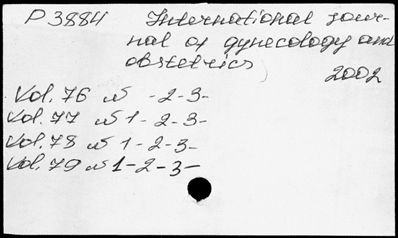 P3884 International jour-
nal of gynecology and
obstetrics
2002
Vol. 76 N -2-3-
Vol. 77 N 1-2-3-
Vol. 78 N 1-2-3-
Vol. 79 N 1-2-3-